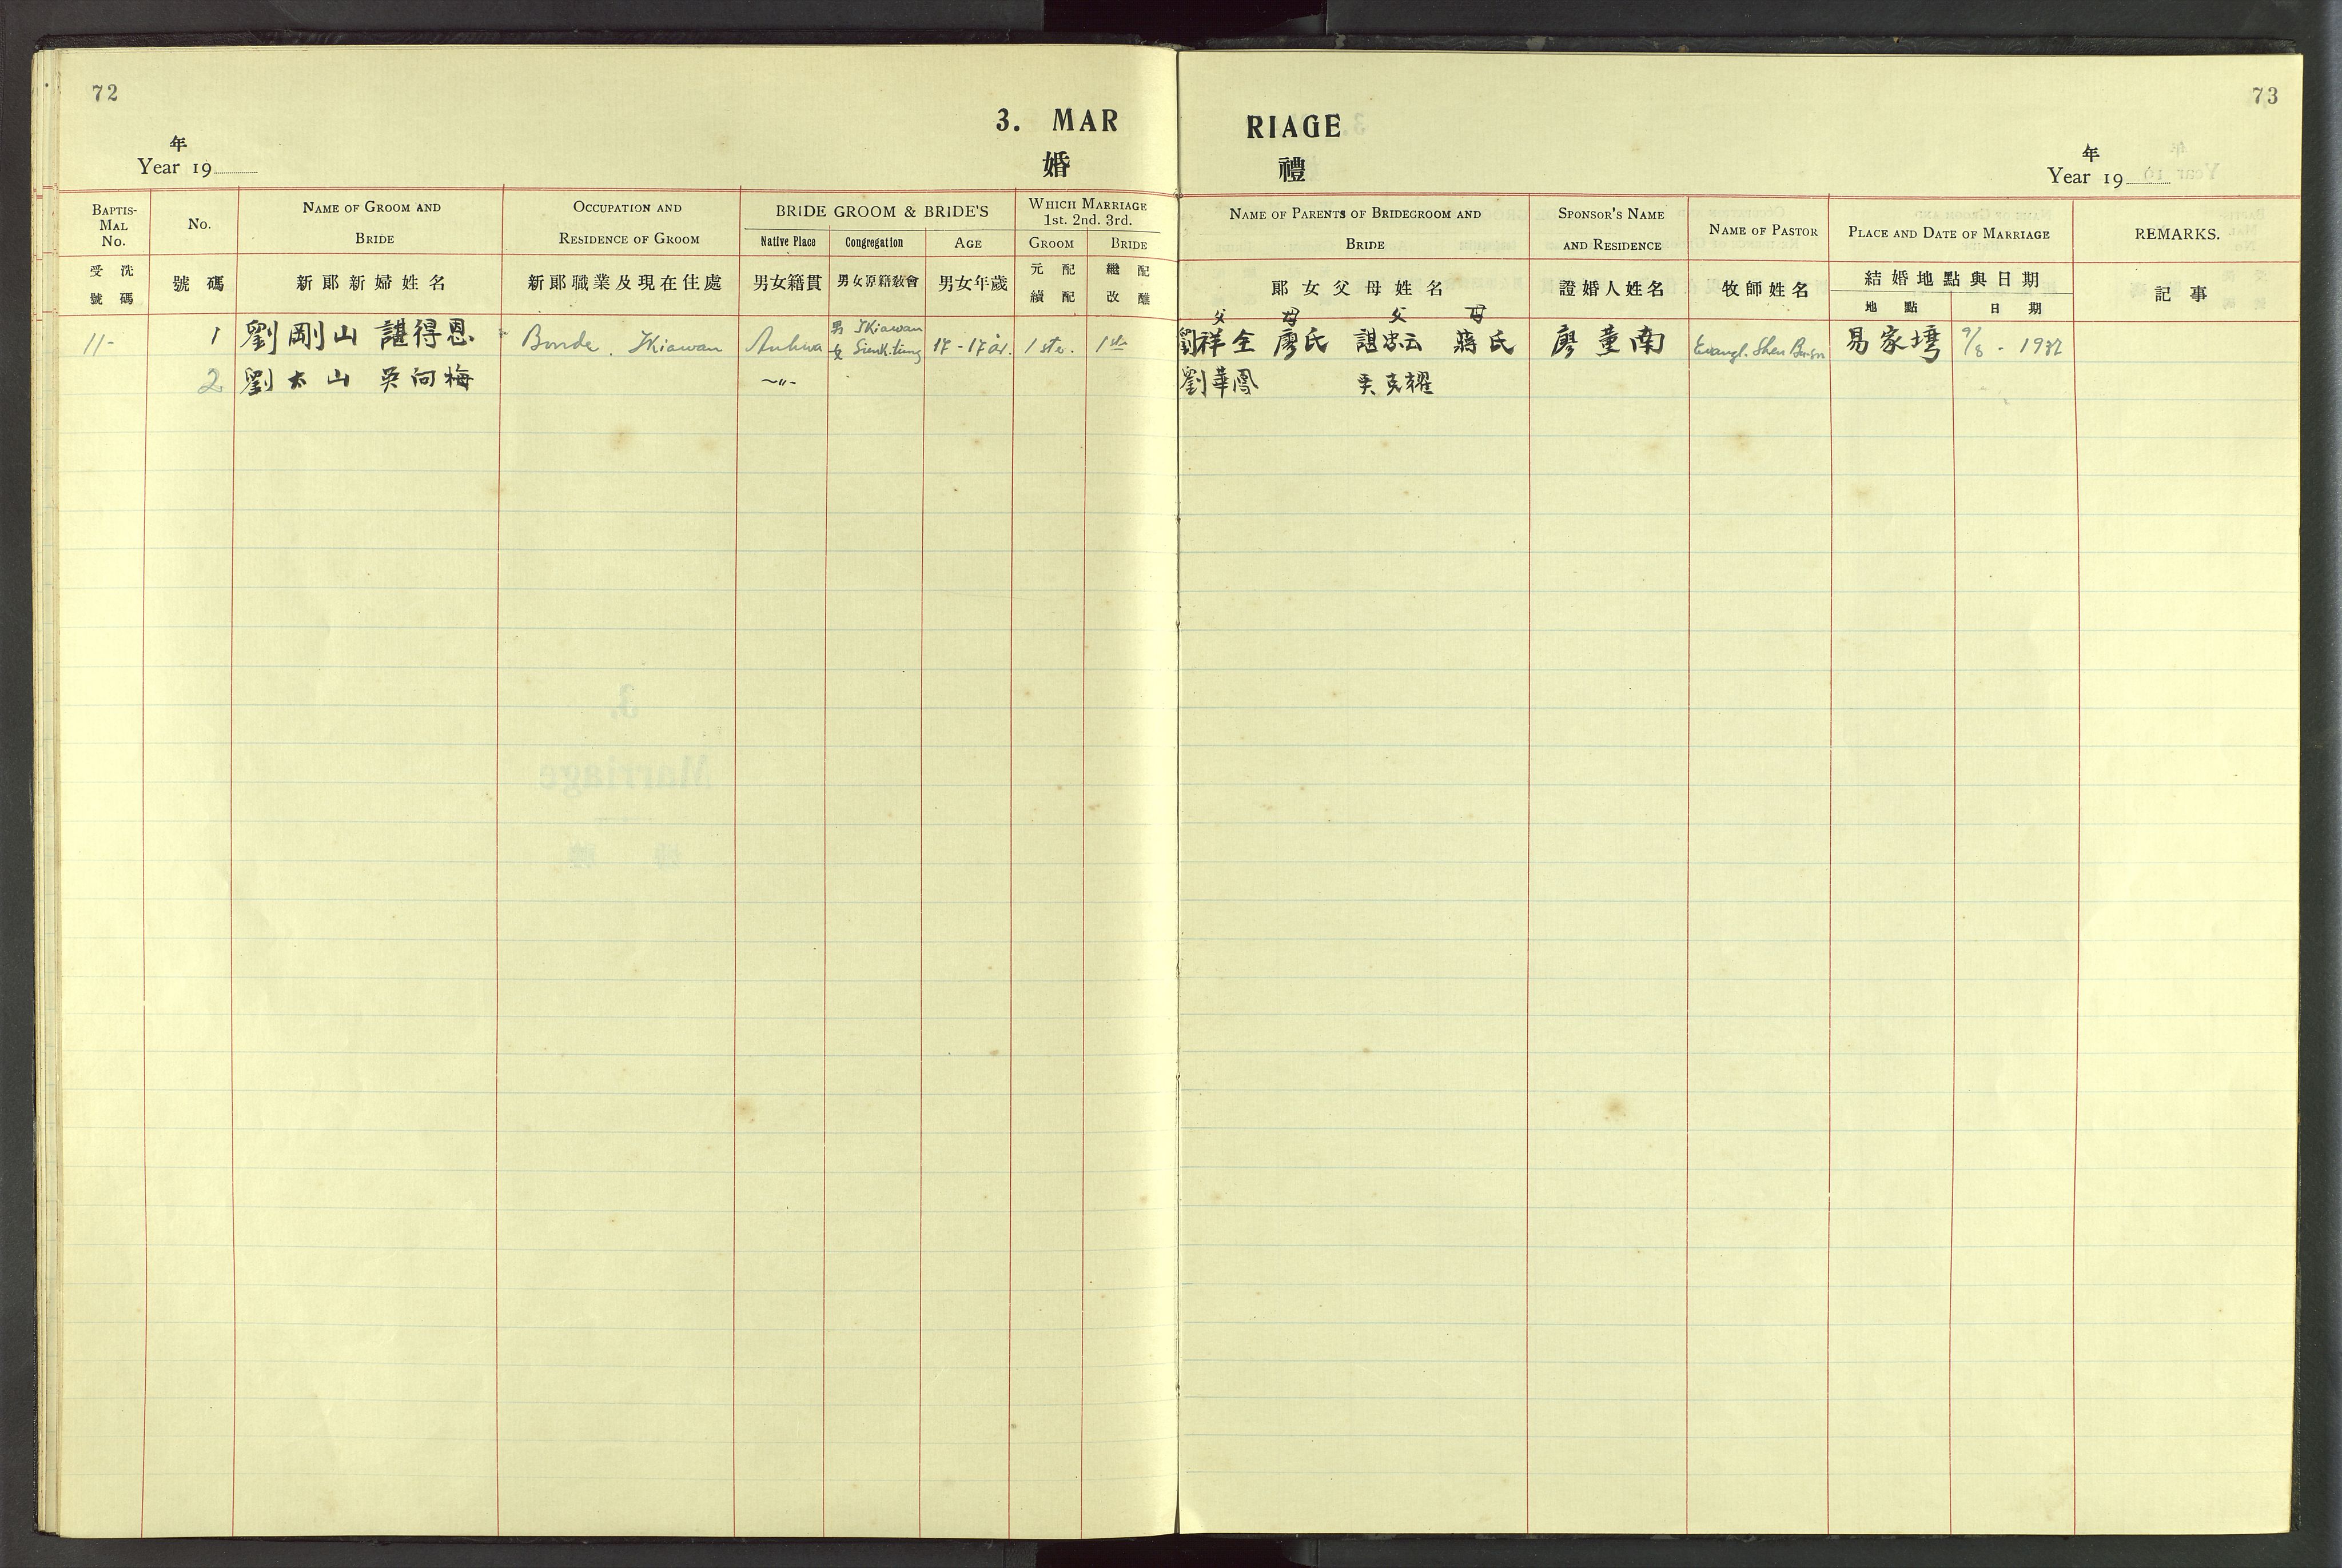 72
3. MAR
年
Year 19
婚
BAPTIS-
MAL
No.
No.
NAME OF GROOM AND
BRIDE
OCCUPATION AND
RESIDENCE OF GROOM
BRIDE GROOM & BRIDE'S
Native Place
Congregation
AGE
WHICH MARRIAGE
1st. 2nd. 3rd.
GROOM
BRIDE
受洗
號碼
號碼
新郎新婦姓名
新郎職業及現在住處
男女籍貫
男女原籍教會
男女年歲
元配
續配
繼配
改醮
11- 1 劉剛山 諶得恩 Bonde. Ikiawan Anhwa 男 Ikiawan 17-17 år. 1ste. 1ste
女
2. 劉太山 吳向梅 -"-
73
RIAGE
禮
年
Year 19
NAME OF PARENTS OF BRIDEGROOM AND
BRIDE
SPONSOR'S NAME
AND RESIDENCE
NAME OF PASTOR
PLACE AND DATE OF MARRIAGE
REMARKS.
郎女父母姓名
證婚人姓名
牧師姓名
結婚地點與日期
地點
日期
記事
父 母 父 母
劉祥全 廖氏 諶忠云 蔣氏 廖董南 Evangl. Shen 易家塆 9/8 - 1932
劉華鳳 吳克耀
3.
Marriage
婚禮